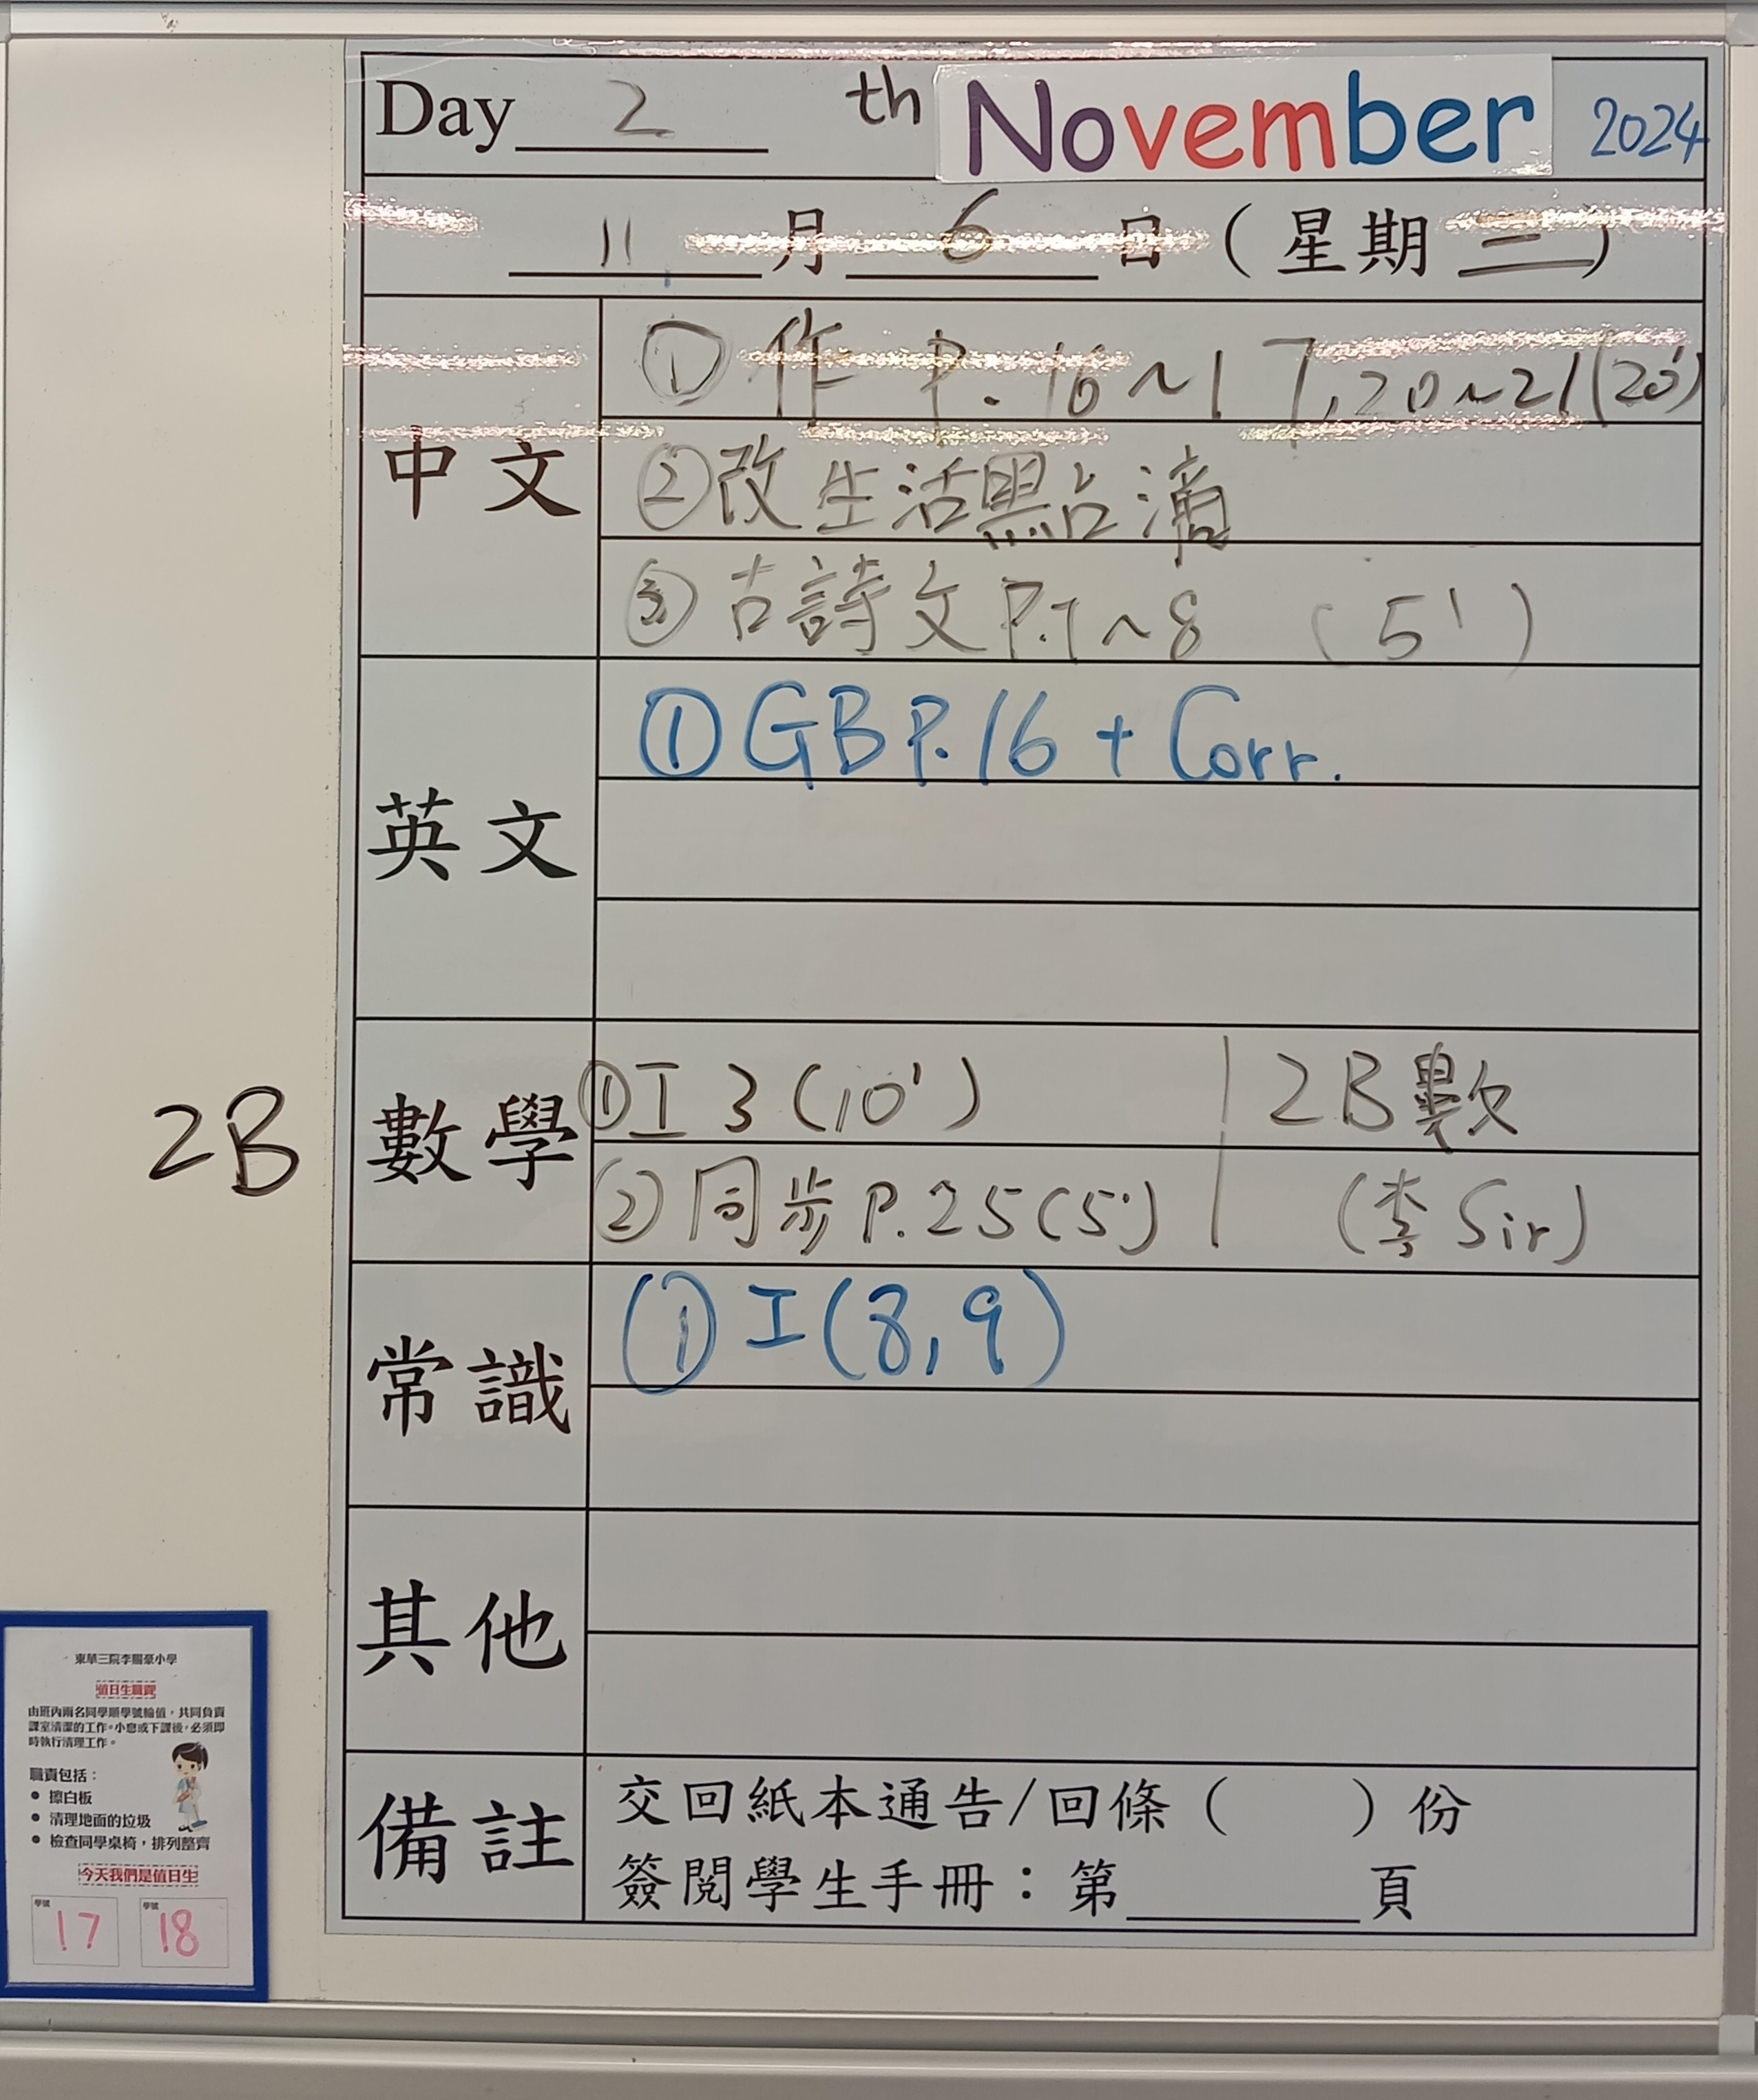 Day 2 th November 2024
11 月 6 日 ( 星期 二 )
中文
① 作 P. 16~17, 20~21 (20')
② 改生活點滴
③ 古詩文 P.7~8 (5')
英文
① GB P.16 + Corr.
2B
數學
① I 3 (10') | 2B 數
② 同步 P.25 (5') | (李 Sir)
常識
① I (8, 9)
其他
備註
交回紙本通告/回條 ( ) 份
簽閱學生手冊：第________頁
東華三院李賜豪小學
值日生職責
由班內兩名同學順學號輪值，共同負責
課室清潔的工作。小息或下課後，必須即
時執行清理工作。
職責包括：
• 擦白板
• 清理地面的垃圾
• 檢查同學桌椅，排列整齊
今天我們是值日生
學號 17 學號 18